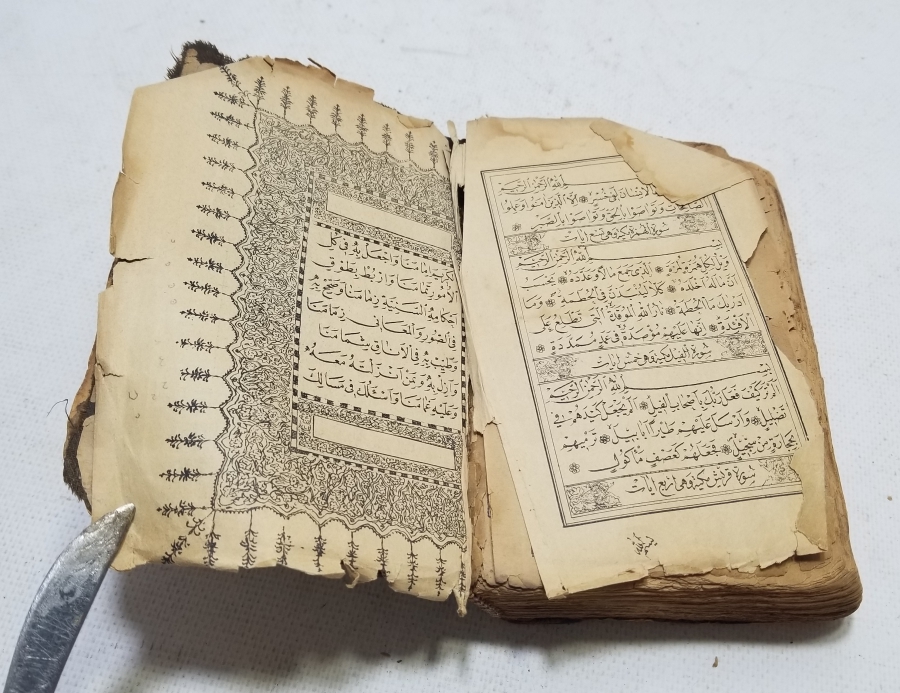 الله الرحمن الرحيم
الانسان لفي خسر الا الذين امنوا وعملوا
الصالحات وتواصوا بالحق وتواصوا بالصبر
سورة الهمزة مكية وهي تسع ايات
بسم الله الرحمن الرحيم
ويل لكل همزة لمزة الذي جمع مالا وعدده يحسب
ان ماله اخلده كلا لينبذن في الحطمة وما
ادريك ما الحطمة نار الله الموقدة التي تطلع على
الافئدة انها عليهم مؤصدة في عمد ممددة
سورة الفيل مكية وهي خمس ايات
بسم الله الرحمن الرحيم
الم تر كيف فعل ربك باصحاب الفيل الم يجعل كيدهم في
تضليل وارسل عليهم طيرا ابابيل ترميهم
بحجارة من سجيل فجعلهم كعصف ماكول
سورة قريش مكية وهي اربع ايات
امامنا واجعل به في كل
الامور تمامنا
السنية زمامنا وسخر به
في
وطيب به في الافاق شمامنا
وانزل به ومن
وعليه